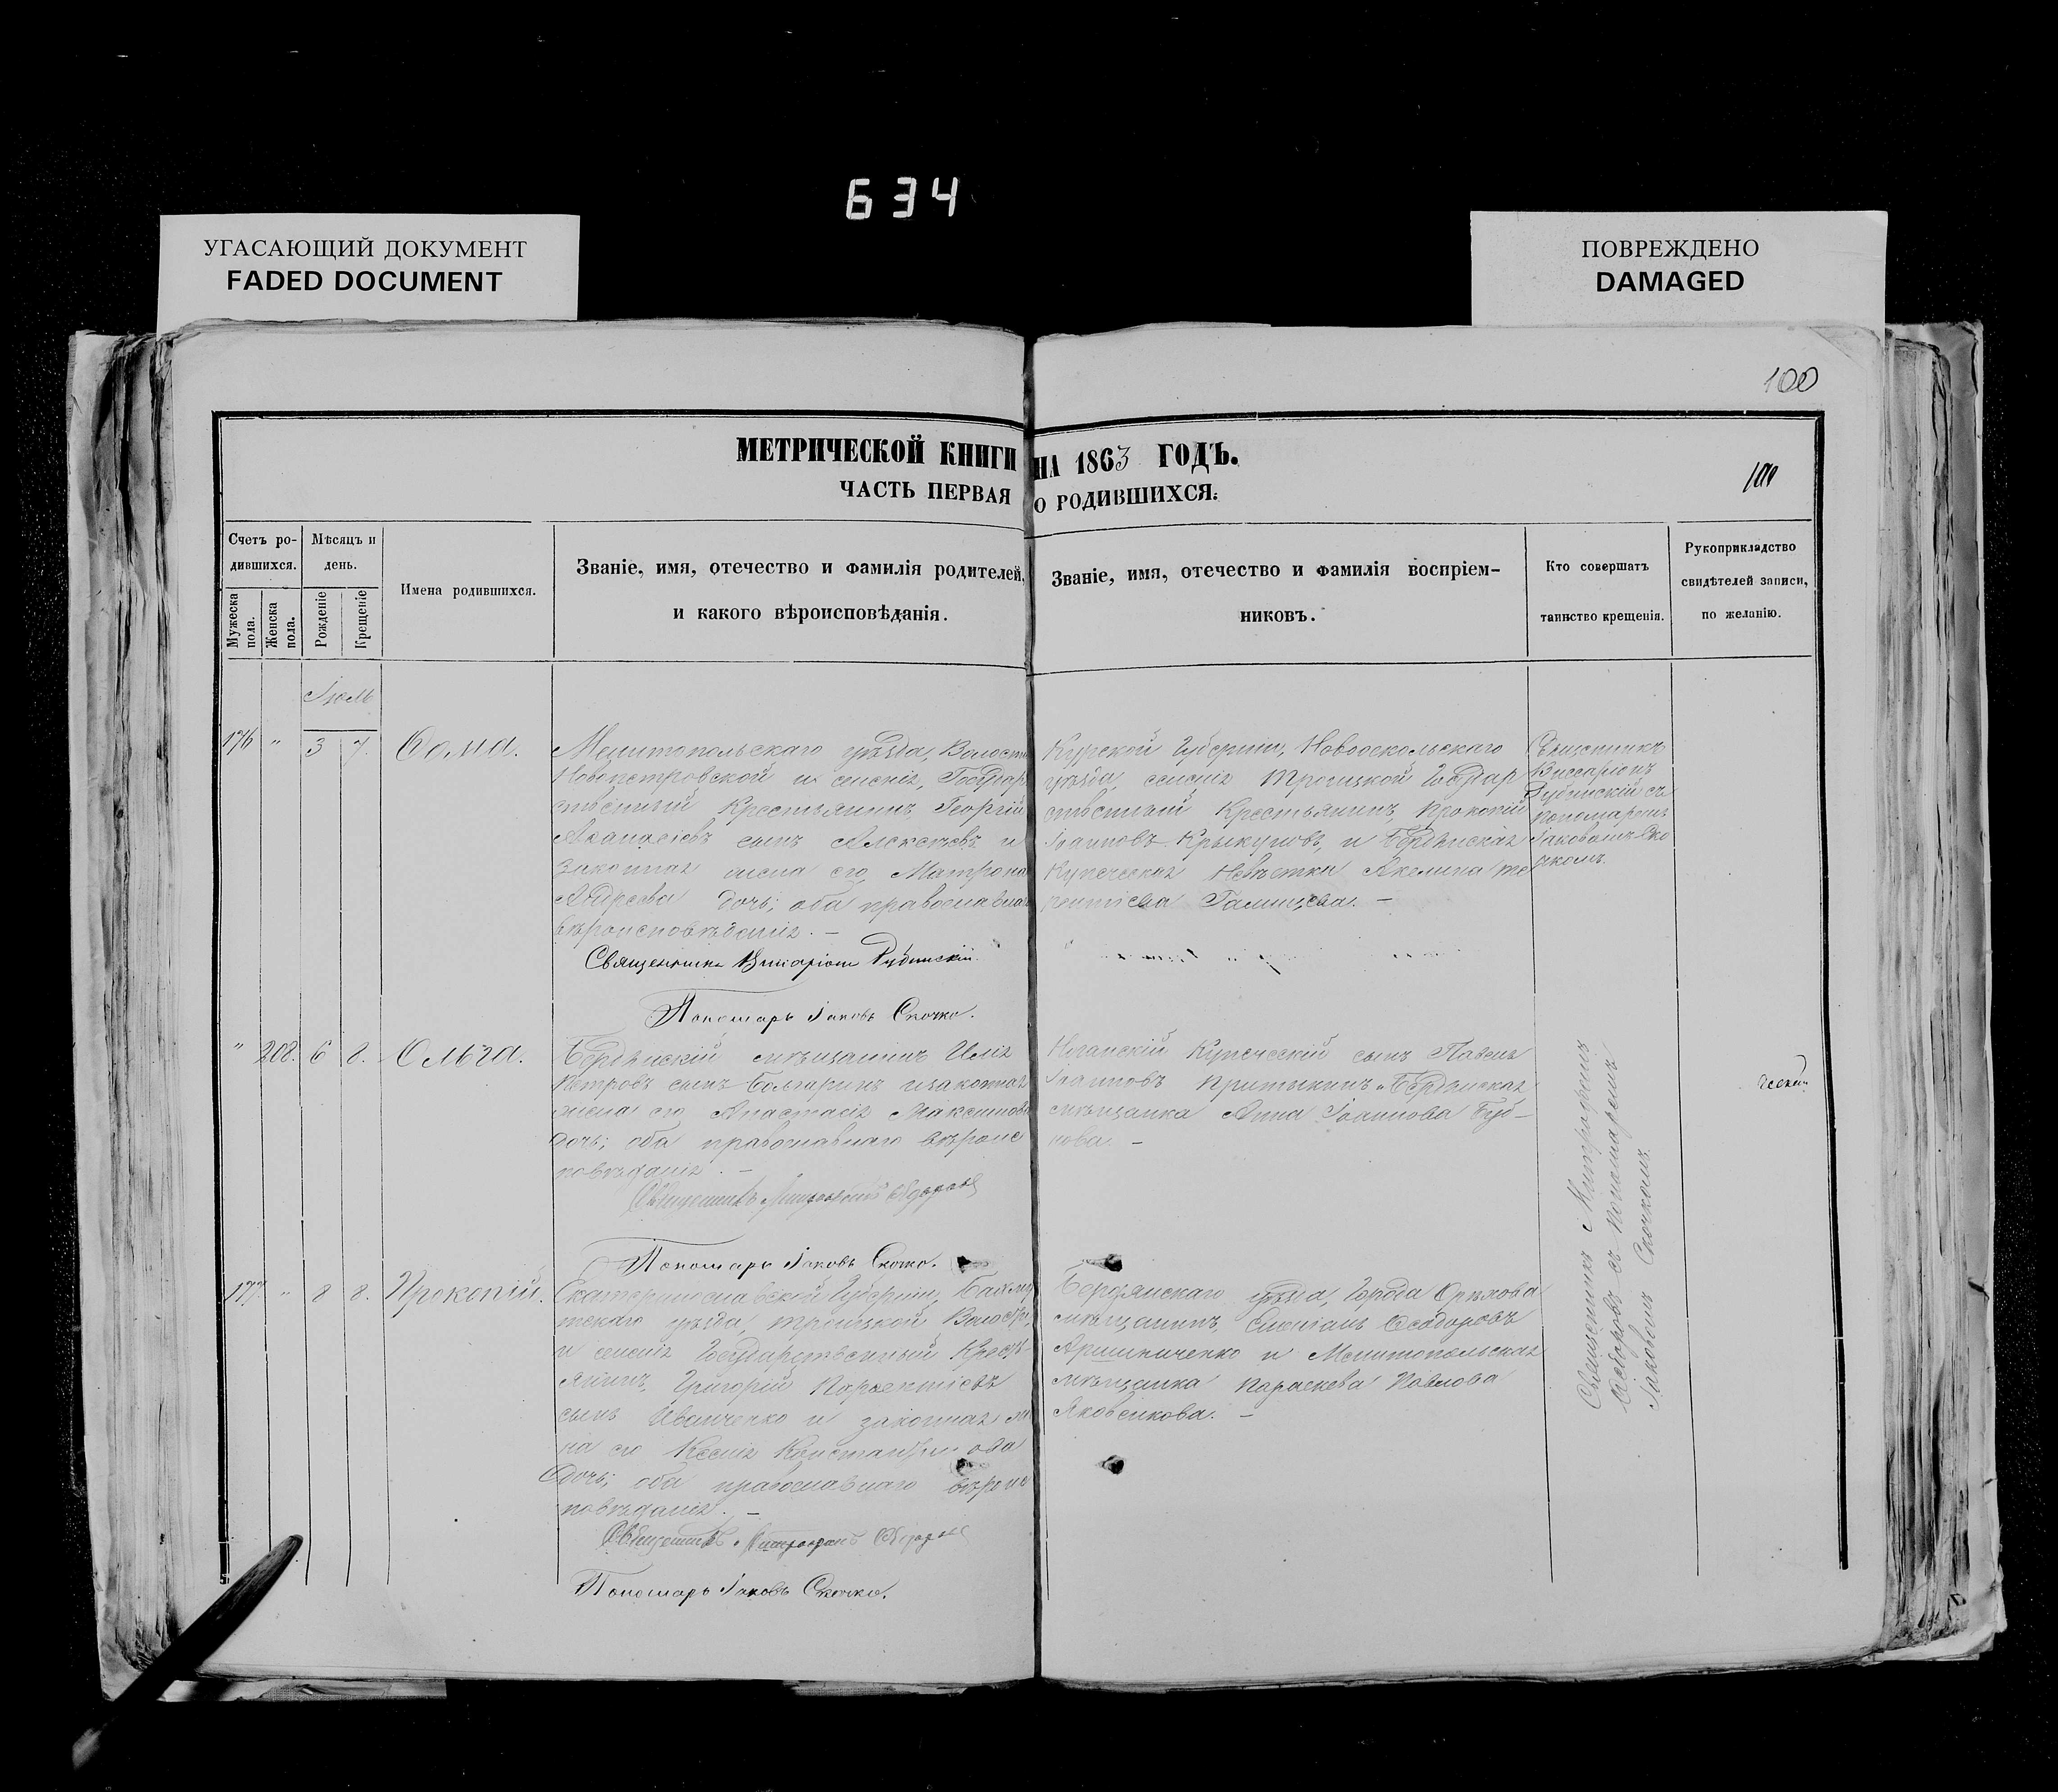 634
УГАСАЮЩИЙ ДОКУМЕНТ
FADED DOCUMENT
ПОВРЕЖДЕНО
DAMAGED
100
МЕТРИЧЕСКОЙ КНИГИ НА 1863 ГОДЪ.
ЧАСТЬ ПЕРВАЯ О РОДИВШИХСЯ.
100
Счетъ ро-
дившихся.
Мужеска
пола.
Женска
пола.
Мѣсяцъ и
день.
Рожденіе
Крещеніе
Имена родившихся.
Званіе, имя, отечество и фамилія родителей,
и какого вѣроисповѣданія.
Званіе, имя, отечество и фамилія воспріем-
никовъ.
Кто совершатъ
таинство крещенія.
Рукоприкладство
свидѣтелей записи,
по желанію.
Іюль
176 " 3 7. Ѳома.
Мелитопольскаго уѣзда, Волости
Новопетровской и селенія, Государ
ственный Крестьянинъ Георгій
Аѳанасіевъ сынъ Алексѣевъ и
законная жена его Матрона
Андреева дочь; оба православнаго
вѣроисповѣданія. –
Священникъ Виссаріонъ
Пономарь Іаковъ Скочко.
Курской Губерніи, Новооскольскаго
уѣзда, селенія Троицкой Государ
ственный Крестьянинъ Прокопій
Іоанновъ Крыкуновъ, и Бердянская
Купеческая Невѣстка Акелина Те
рентіева Галищева. –
Священникъ
Виссаріонъ
съ
пономаремъ
Іаковомъ Ско
чкомъ.
" 208. 6 8. Ольга.
Бердянскій мѣщанинъ Илія
Петровъ сынъ Болгаринъ и законная
жена его Анастасія Максимова
дочь; оба православнаго вѣроис
повѣданія. –
Священникъ Митрофанъ
Пономарь Іаковъ Скочко.
Ногайскій Купеческій сынъ Павелъ
Іоанновъ Притыкинъ и Бердянская
мѣщанка Анна Іоаннова Буд–
кова. –
177. " 8 8. Прокопій.
Екатеринославской Губерніи, Бахму
тскаго уѣзда, Троицкой Волости,
и селенія Государственный Кресть
янинъ, Григорій Пороентіевъ
сынъ Иванченко и законная же
на его Ксенія Константинова
дочь; оба православнаго вѣроис
повѣданія. –
Священникъ Митрофанъ
Пономарь Іаковъ Скочко.
Бердянскаго уѣзда, Города Орѣхова
мѣщанинъ, Стефанъ Ѳеодоровъ
Аршиниченко и Мелитопольская
мѣщанка Параскева Павлова
Яковенкова. –
Священникъ Митрофанъ
съ Пономаремъ
Іаковомъ Скочкомъ.